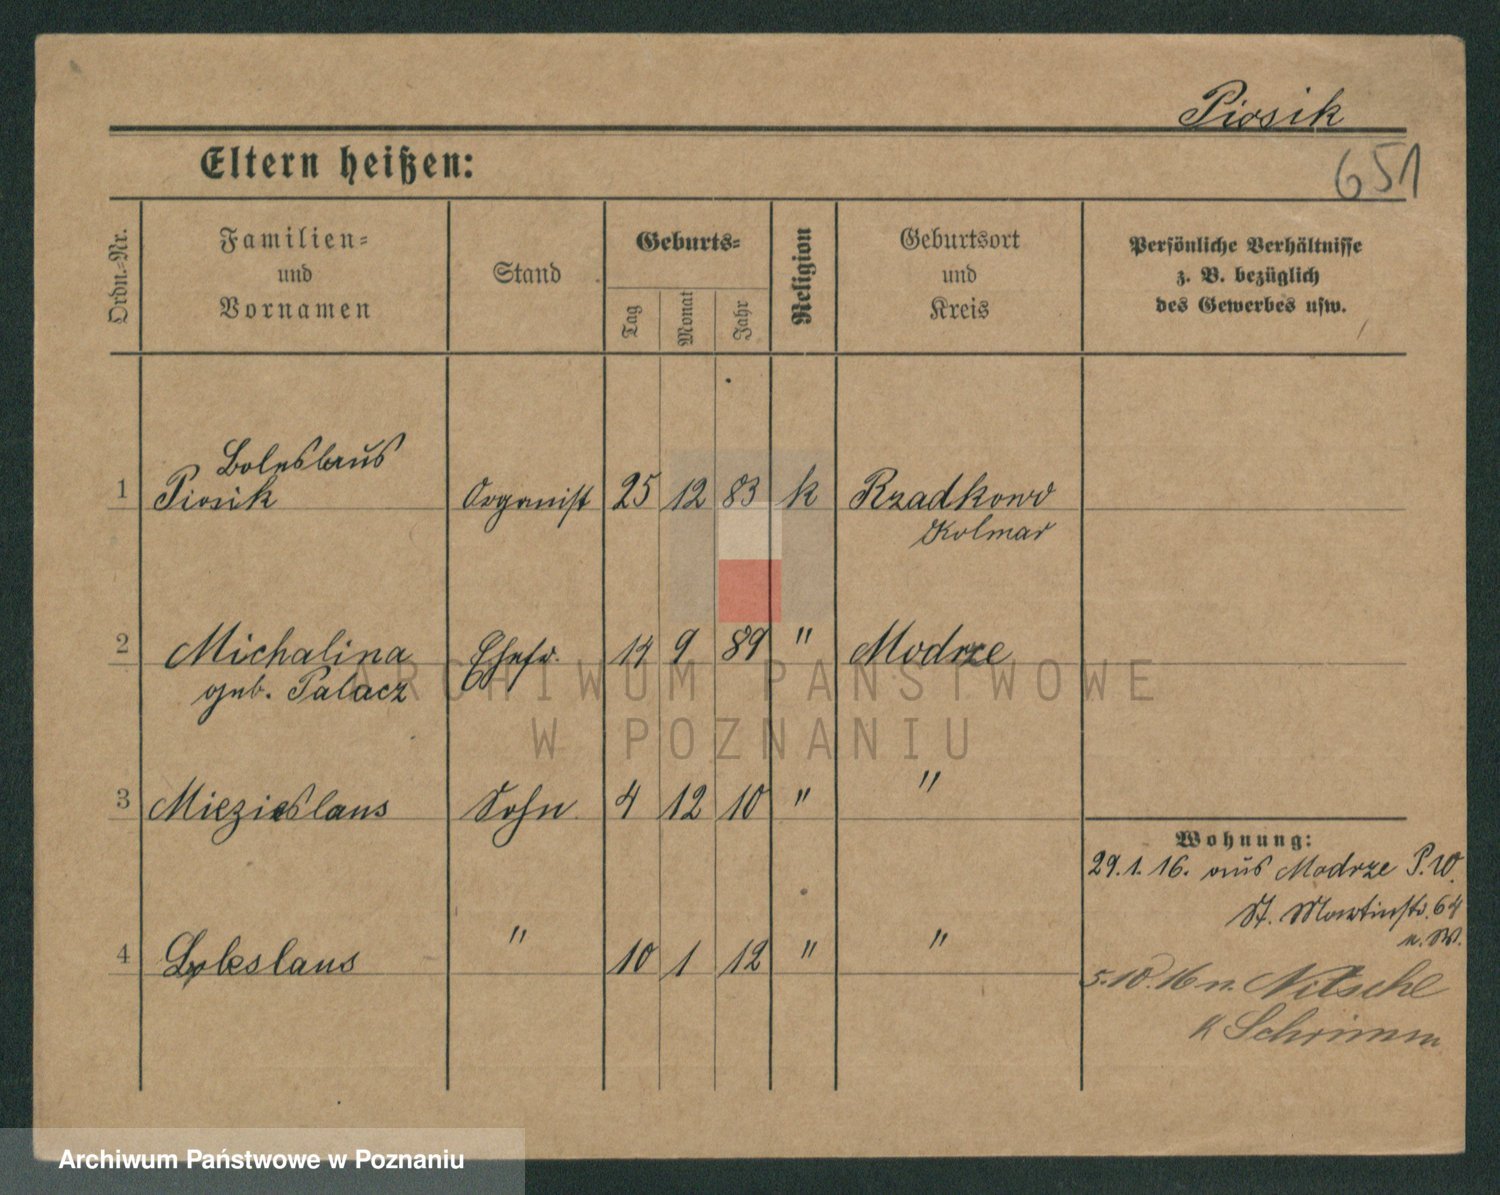 Piosik
651
Eltern heißen:
Ordn.-Nr.
Familien-
und
Vornamen
Stand
Geburts-
Tag
Monat
Jahr
Religion
Geburtsort
und
Kreis
Persönliche Verhältnisse
z. B. bezüglich
des Gewerbes usw.
Boleslaus
1 Piosik Organist 25 12 83 k Rzadkowo
Kolmar
2 Michalina Ehefr. 14 9 89 " Modrze
geb. Palacz
3 Miezieslaus Sohn 4 12 10 " "
Wohnung:
29.1.16. aus Modrze P.W.
St. Martinstr. 64
4 Boleslaus " 10 1 12 " "
5.10.16 n. Nitsche
K Schrimm
ARCHIWUM PAŃSTWOWE
W POZNANIU
Archiwum Państwowe w Poznaniu